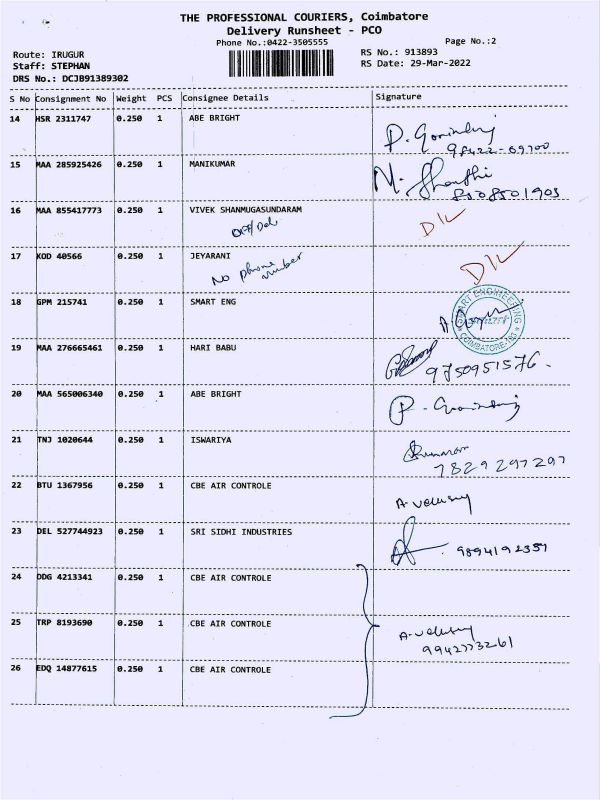 THE PROFESSIONAL COURIERS, Coimbatore
Delivery Runsheet - PCO
Phone No.:0422-3505555
Page No.:2
Route: IRUGUR
RS No.: 913893
Staff: STEPHAN
RS Date: 29-Mar-2022
DRS No.: DCJB91389302
S No Consignment No Weight PCS Consignee Details Signature
14 HSR 2311747 0.250 1 ABE BRIGHT
P. Govindaraj
98422-69700
15 MAA 285925426 0.250 1 MANIKUMAR
N. Shanthi
8508501903
16 MAA 855417773 0.250 1 VIVEK SHANMUGASUNDARAM
D/L
17 KOD 40566 0.250 1 JEYARANI
No phone number
D/L
18 GPM 215741 0.250 1 SMART ENG
SMART ENGINEERING
COIMBATORE-103
19 MAA 276665461 0.250 1 HARI BABU
9750951576.
20 MAA 565006340 0.250 1 ABE BRIGHT
21 TNJ 1020644 0.250 1 ISWARIYA
7829297297
22 BTU 1367956 0.250 1 CBE AIR CONTROLE
A. Velusamy
23 DEL 527744923 0.250 1 SRI SIDHI INDUSTRIES
9894192357
24 DDG 4213341 0.250 1 CBE AIR CONTROLE
25 TRP 8193690 0.250 1 CBE AIR CONTROLE
A. Velusamy
9942773261
26 EDQ 14877615 0.250 1 CBE AIR CONTROLE